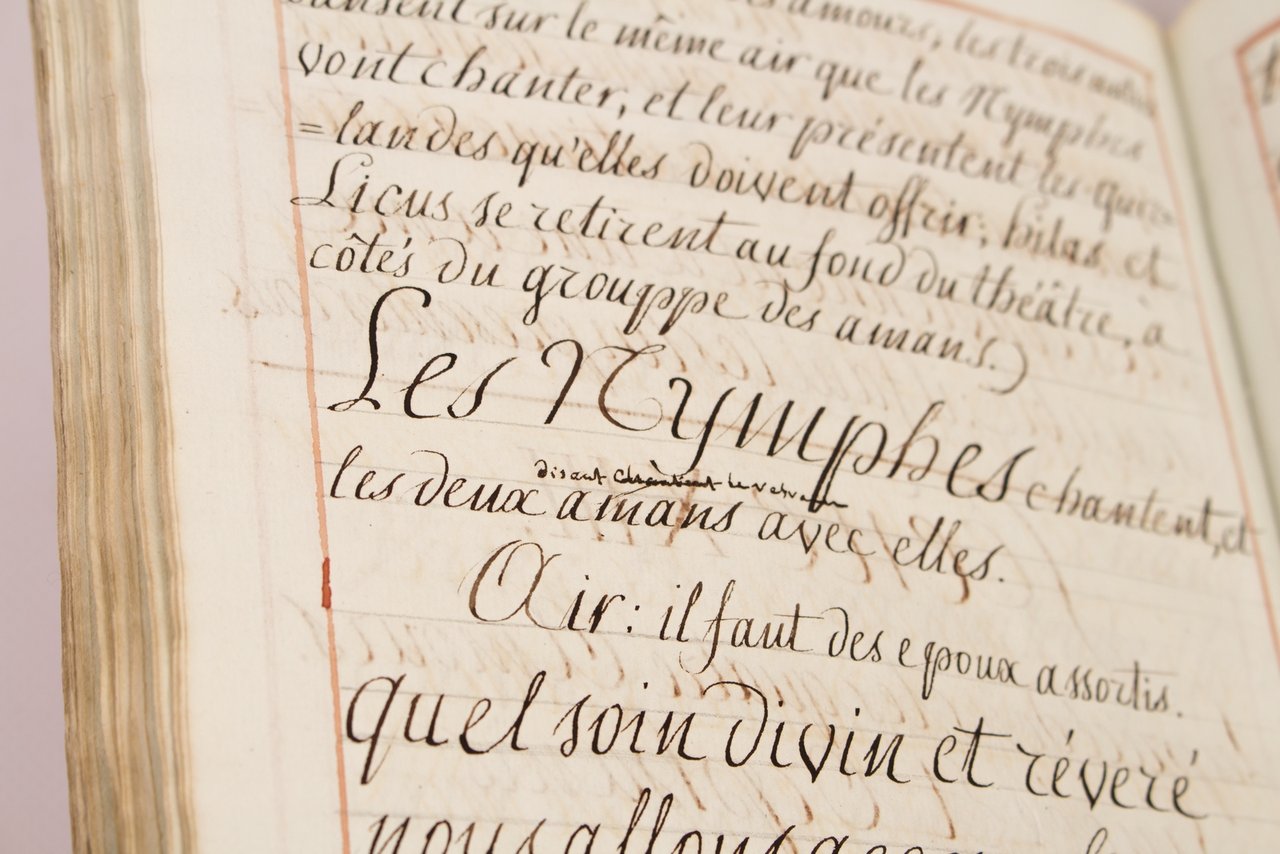 amours, les trois autres
dansent sur le même air que les Nymphes
vont chanter, et leur présentent les guir=
=landes qu'elles doivent offrir; hilas et
Licus se retirent au fond du théâtre, à
côtés du grouppe des amans.)
Les Nymphes chantent, et
disent
les deux amans avec elles.
Air: il faut des epoux assortis.
quel soin divin et révéré
nous allons